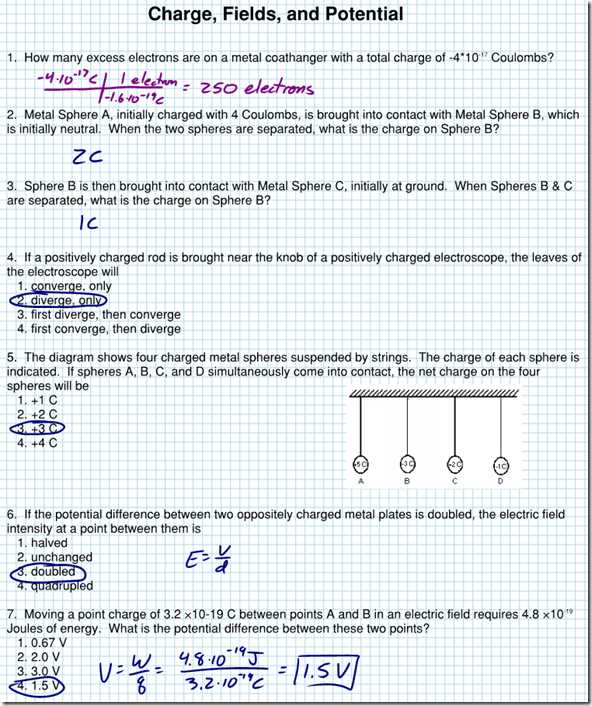 Charge, Fields, and Potential
1. How many excess electrons are on a metal coathanger with a total charge of -4*10⁻¹⁷ Coulombs?
-4·10⁻¹⁷C | 1 electron = 250 electrons
-1.6·10⁻¹⁹C
2. Metal Sphere A, initially charged with 4 Coulombs, is brought into contact with Metal Sphere B, which
is initially neutral. When the two spheres are separated, what is the charge on Sphere B?
2C
3. Sphere B is then brought into contact with Metal Sphere C, initially at ground. When Spheres B & C
are separated, what is the charge on Sphere B?
1C
4. If a positively charged rod is brought near the knob of a positively charged electroscope, the leaves of
the electroscope will
1. converge, only
2. diverge, only
3. first diverge, then converge
4. first converge, then diverge
5. The diagram shows four charged metal spheres suspended by strings. The charge of each sphere is
indicated. If spheres A, B, C, and D simultaneously come into contact, the net charge on the four
spheres will be
1. +1 C
2. +2 C
3. +3 C
4. +4 C
+5 C -3 C +2 C -1 C
A B C D
6. If the potential difference between two oppositely charged metal plates is doubled, the electric field
intensity at a point between them is
1. halved
2. unchanged
3. doubled
4. quadrupled
E = V/d
7. Moving a point charge of 3.2 ×10-19 C between points A and B in an electric field requires 4.8 ×10⁻¹⁹
Joules of energy. What is the potential difference between these two points?
1. 0.67 V
2. 2.0 V
3. 3.0 V
4. 1.5 V
V = W/q = 4.8·10⁻¹⁹J / 3.2·10⁻¹⁹C = 1.5 V